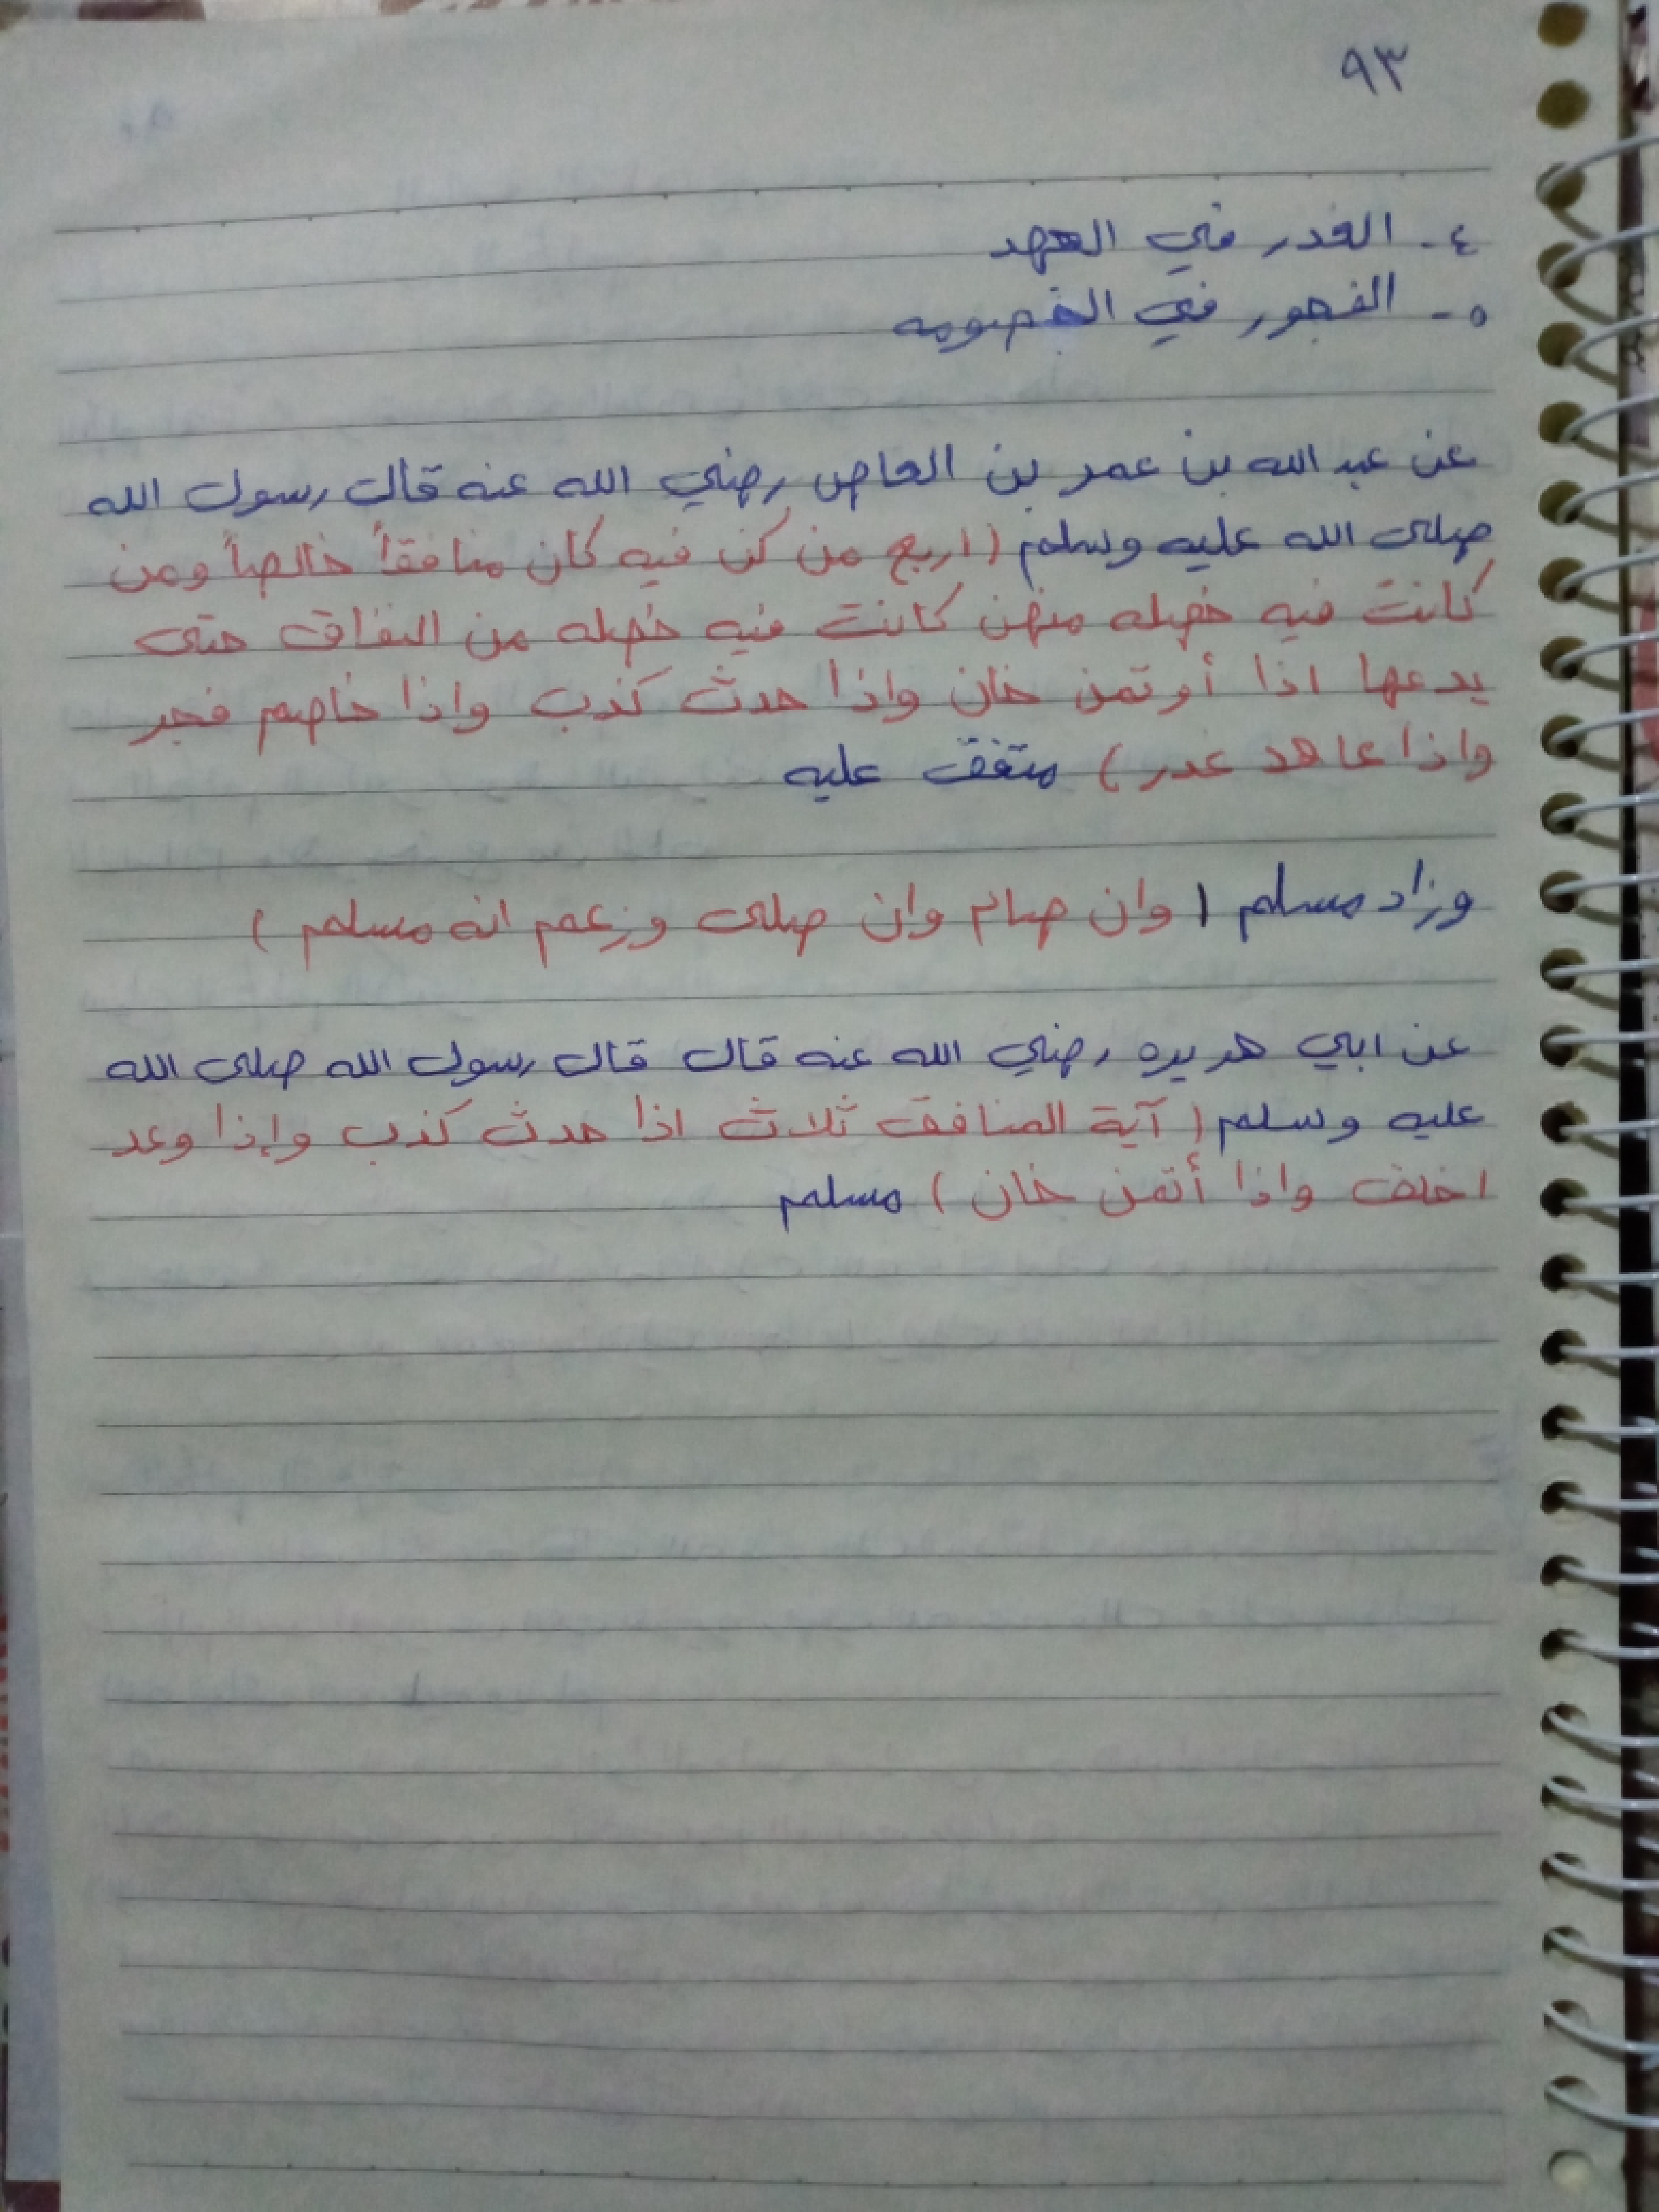 ٩٣
٤- الغدر في العهد
٥- الفجور في الخصومه
عن عبد الله بن عمر بن العاص رضي الله عنه قال رسول الله
صلى الله عليه وسلم (اربع من كن فيه كان منافقاً خالصاً ومن
كانت فيه خصله منهن كانت فيه خصله من النفاق حتى
يدعها اذا أوتمن خان واذا حدث كذب واذا خاصم فجر
واذا عاهد غدر) متفق عليه
وزاد مسلم (وان صام وان صلى وزعم انه مسلم)
عن ابي هريره رضي الله عنه قال قال رسول الله صلى الله
عليه وسلم (آية المنافق ثلاث اذا حدث كذب وإذا وعد
اخلف واذا أتمن خان) مسلم